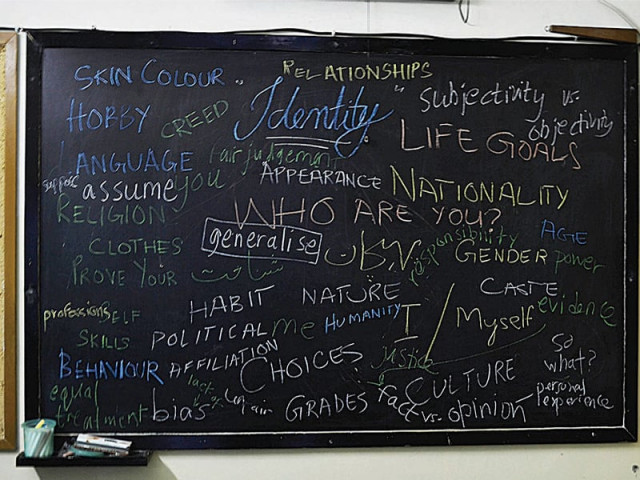 SKIN COLOUR
RELATIONSHIPS
"Identity"
subjectivity vs.
objectivity
HOBBY
CREED
LIFE GOALS
LANGUAGE
fair judgement
suppose
assume
you
APPEARANCE
NATIONALITY
RELIGION
WHO ARE YOU?
CLOTHES
generalise
responsibility
GENDER
AGE
power
PROVE YOUR
SELF
شناخت
HABIT
NATURE
CASTE
evidence
professions
SKILLS
POLITICAL
AFFILIATION
me
HUMANITY
I
Myself
BEHAVIOUR
CHOICES
justice
So
what?
equal
treatment
bias
lack of
unfair
GRADES
CULTURE
fact vs. opinion
personal
experience